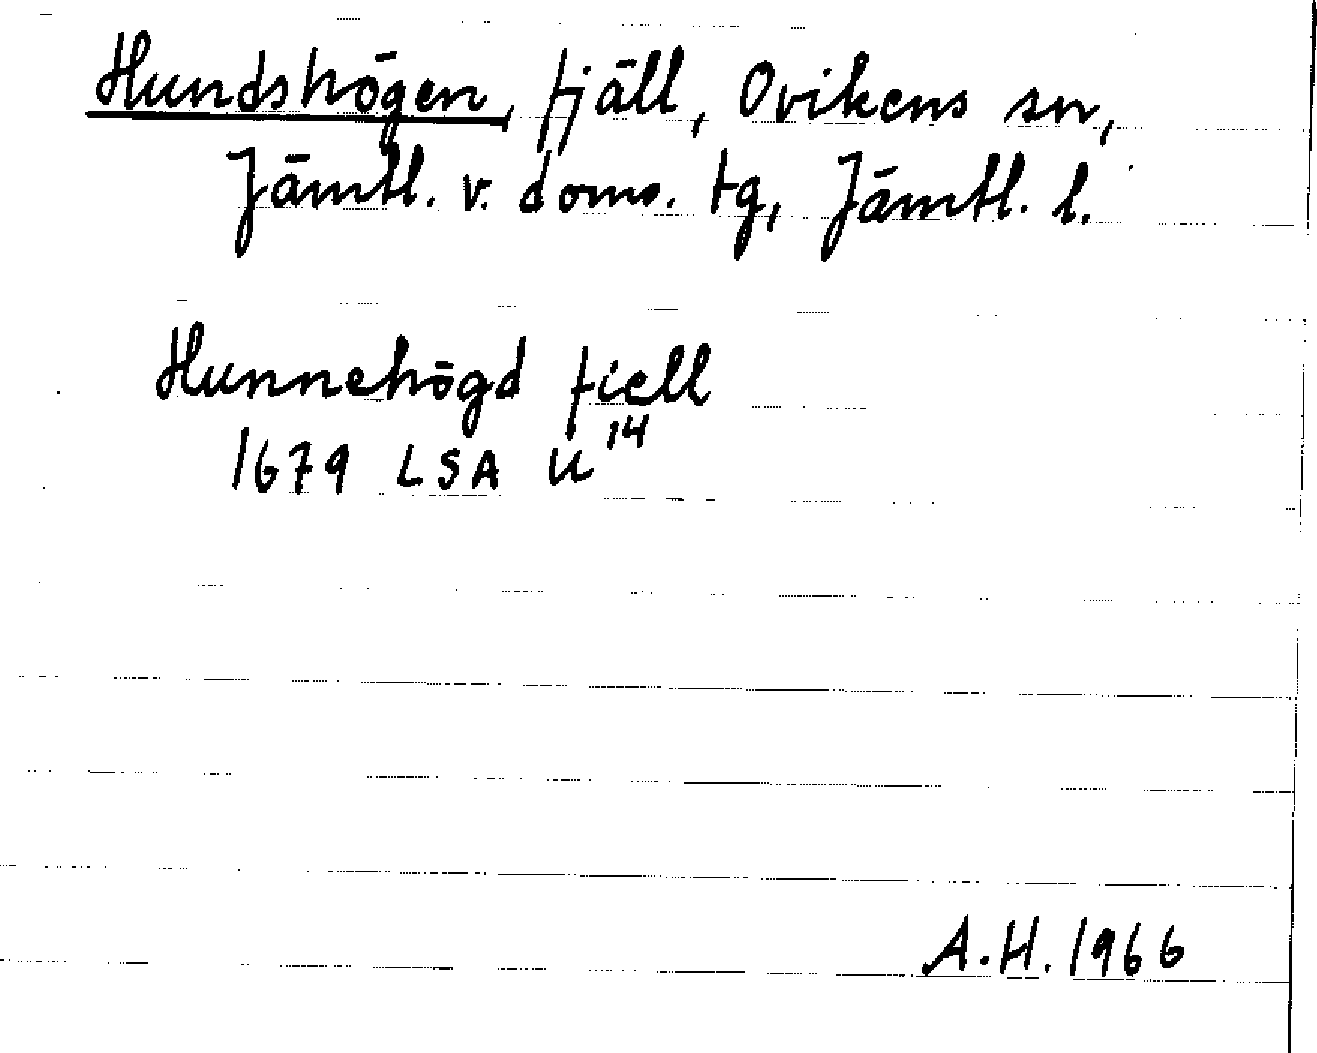 Hundshögen, fjäll, Ovikens sn,
Jämtl. v. doms. tg, Jämtl. l.
Hunnehögd fiell
1679 LSA U¹⁴
A.H. 1966